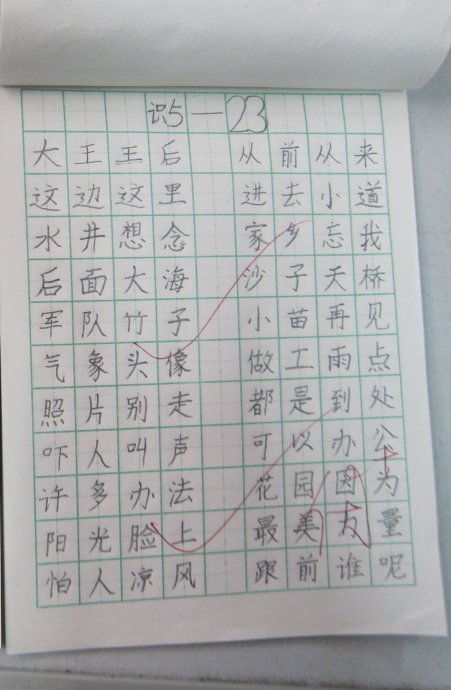 识5—23
大王王后 从前从来
这边这里 进去小道
水井想念 家乡忘我
后面大海 沙子天桥
军队竹子 小苗再见
气象头像 做工雨点
照片别走 都是到处
吓人叫声 可以办公
许多办法 花园因为
阳光脸上 最美量
怕人凉风 跟前谁呢